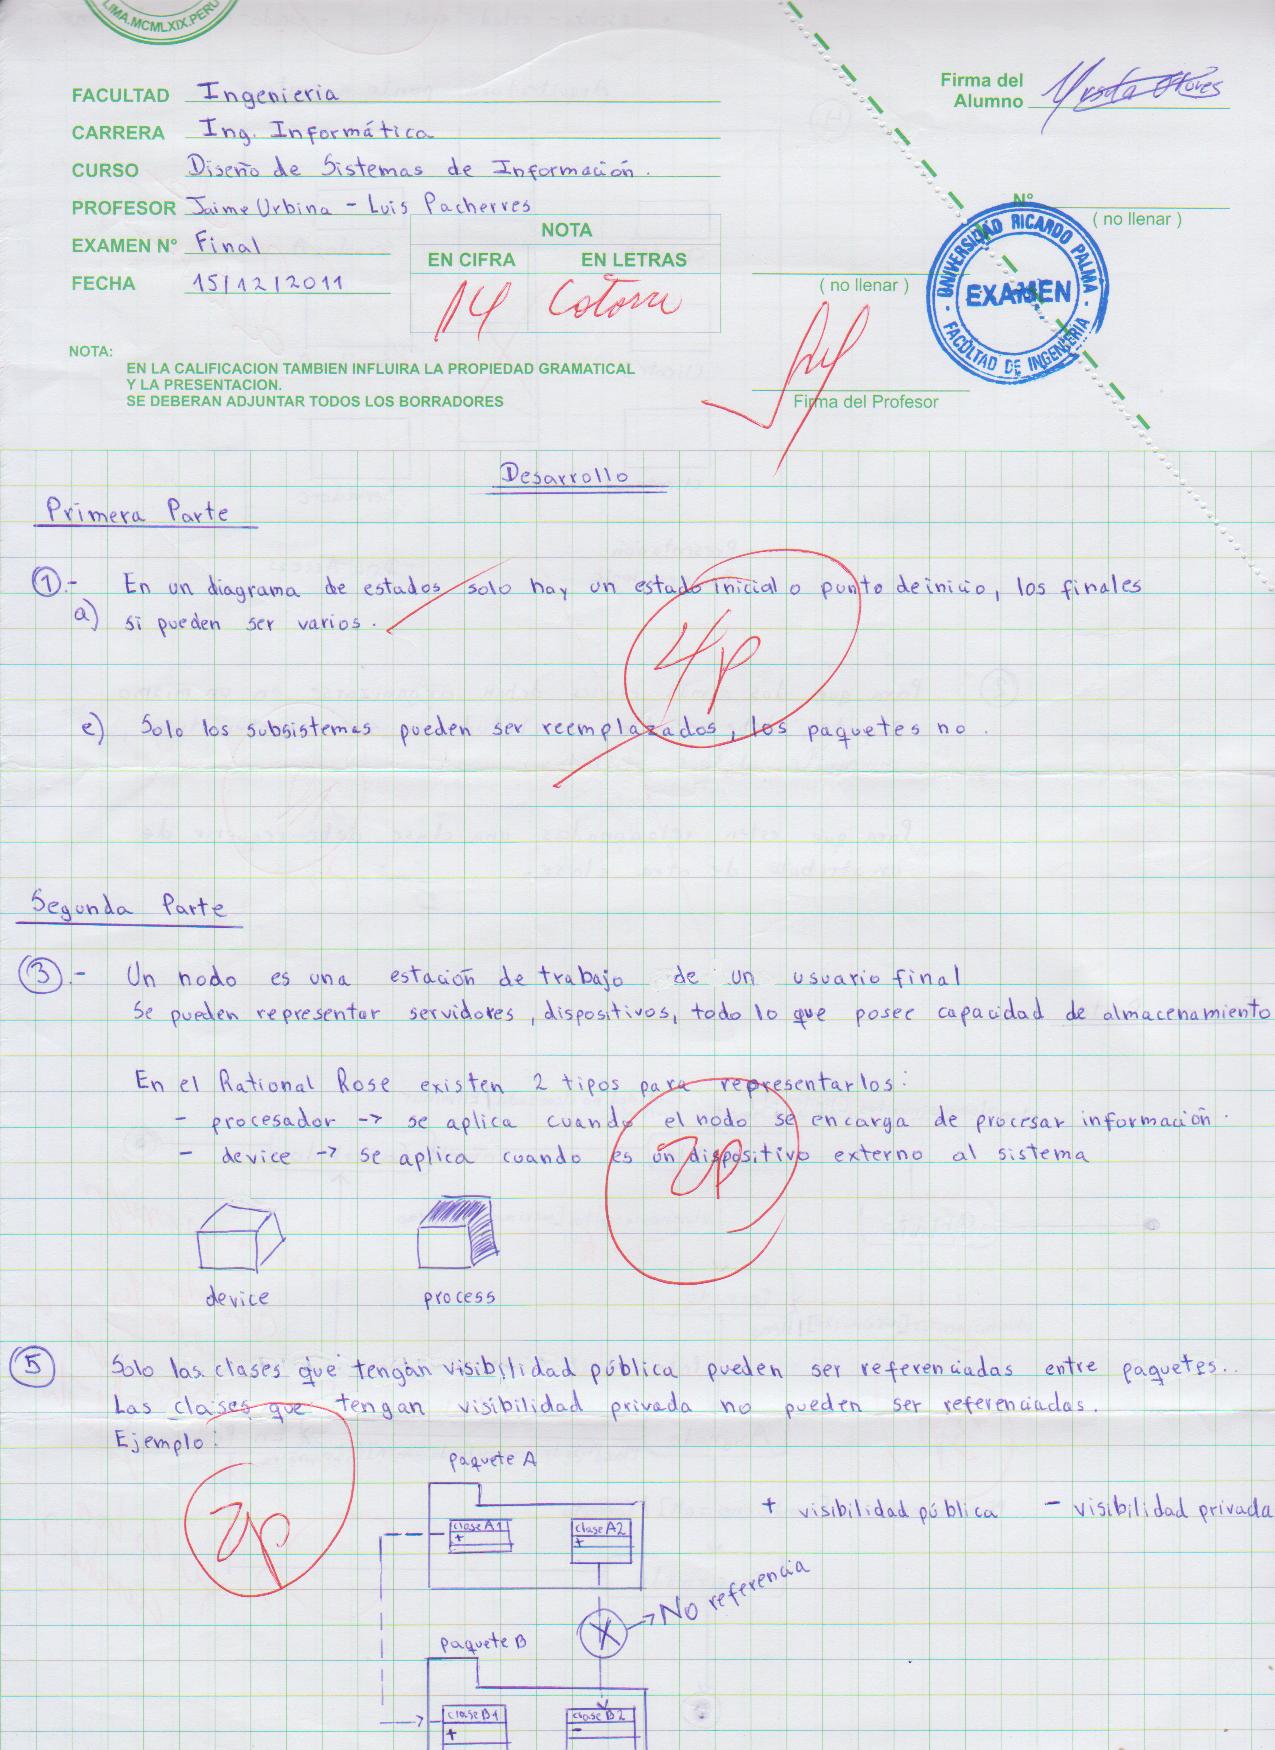 LIMA.MCMLXIX.PERU
FACULTAD Ingenieria
CARRERA Ing. Informática
CURSO Diseño de Sistemas de Información.
PROFESOR Jaime Urbina - Luis Pacherres
EXAMEN N° Final
FECHA 15/12/2011
Firma del
Alumno
NOTA
EN CIFRA EN LETRAS
14
( no llenar )
Firma del Profesor
N°
( no llenar )
UNIVERSIDAD RICARDO PALMA
EXAMEN
FACULTAD DE INGENIERIA
NOTA:
EN LA CALIFICACION TAMBIEN INFLUIRA LA PROPIEDAD GRAMATICAL
Y LA PRESENTACION.
SE DEBERAN ADJUNTAR TODOS LOS BORRADORES
Desarrollo
Primera Parte
1.- En un diagrama de estados solo hay un estado inicial o punto de inicio, los finales
a) si pueden ser varios.
4p
e) Solo los subsistemas pueden ser reemplazados, los paquetes no.
Segunda Parte
3.- Un nodo es una estación de trabajo de un usuario final
Se pueden representar servidores, dispositivos, todo lo que posee capacidad de almacenamiento
En el Rational Rose existen 2 tipos para representarlos:
- procesador -> se aplica cuando el nodo se encarga de procesar información.
- device -> se aplica cuando es un dispositivo externo al sistema
2p
device process
5 Solo las clases que tengan visibilidad pública pueden ser referenciadas entre paquetes..
Las clases que tengan visibilidad privada no pueden ser referenciadas.
Ejemplo:
2p
paquete A
+ visibilidad pública - visibilidad privada
clase A1 clase A2
+ +
No referencia
paquete B
clase B1 clase B2
+ -